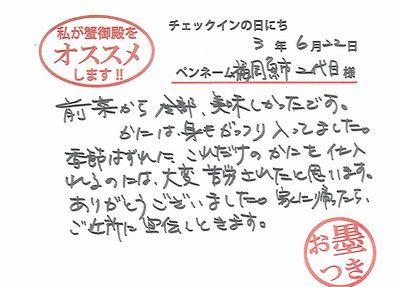 私が蟹御殿を
オススメ
します!!
チェックインの日にち
3年6月22日
ペンネーム 福岡県市二代目様
前菜から全部、美味しかったどす。
かには、身もがっつり入ってました。
季節はずれに、これだけのかにを仕入
れるのには、大変苦労されたと思います。
ありがとうございました。家に帰ったら、
ご近所に宣伝しときます。
お墨
つき